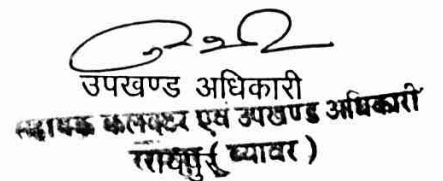 उपखण्ड अधिकारी
सहायक कलक्टर एवं उपखण्ड अधिकारी
रायपुर ( ब्यावर )